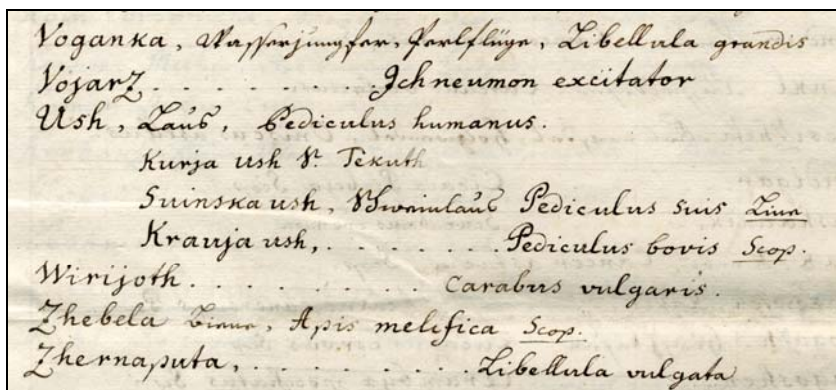 Voganka, Wasserjungfer, Perlflüge, Libellula grandis
Vojarz . . . . . . . . Ichneumon excitator
Ush, Laus, Pediculus humanus.
Kurja ush V. Tekuth
Suinska ush, Schweinlaus Pediculus suis Linn
Krauja ush, . . . . . . . Pediculus bovis Scop.
Wirijoth . . . . . . . . . Carabus vulgaris.
Zhebela Biene, Apis melifica Scop.
Zhernaputa, . . . . . . . . . Libellula vulgata